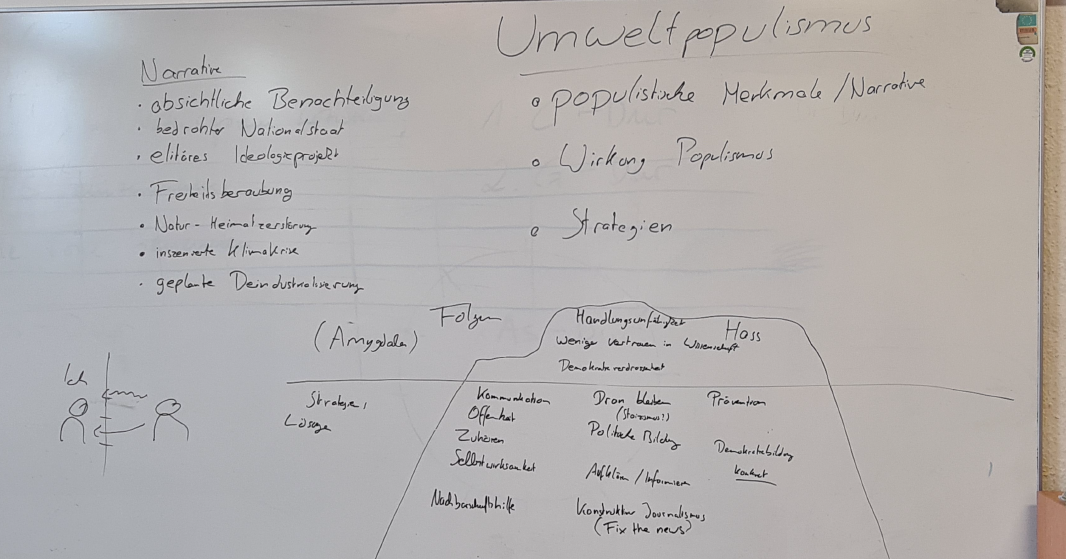 Umweltpopulismus
Narrative
· absichtliche Benachteiligung
· bedrohter Nationalstaat
· elitäres Ideologieprojekt
· Freiheitsberaubung
· Natur-Heimatzerstörung
· inszenierte Klimakrise
· geplante Deindustrialisierung
o populistische Merkmale/Narrative
o Wirkung Populismus
o Strategien
Folgen
(Amygdala)
Handlungsunfähigkeit
Hass
Wenige Vertrauen in Wissenschaft
Demokratieverdrossenheit
Ich
Strategie,
Lösung
Kommunikation
Offenheit
Zuhören
Selbstwirksamkeit
Nachbarschaftshilfe
Dran bleiben
(Stoizismus!)
Politische Bildung
Aufklären/Informieren
Konstruktiver Journalismus
(Fix the news)
Prävention
Demokratiebildung
konkret